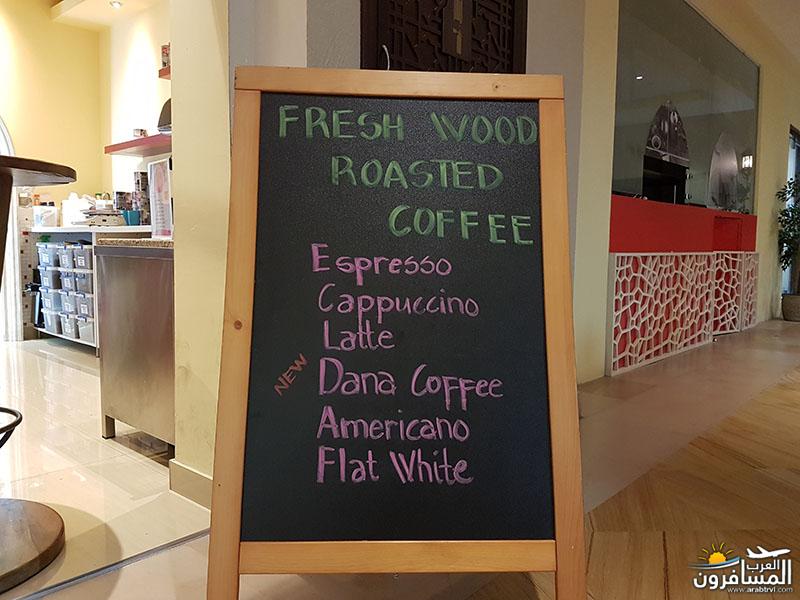 FRESH WOOD
ROASTED
COFFEE
Espresso
Cappuccino
Latte
NEW Dana Coffee
Americano
Flat White
العرب
المسافرون
www.arabtrvl.com